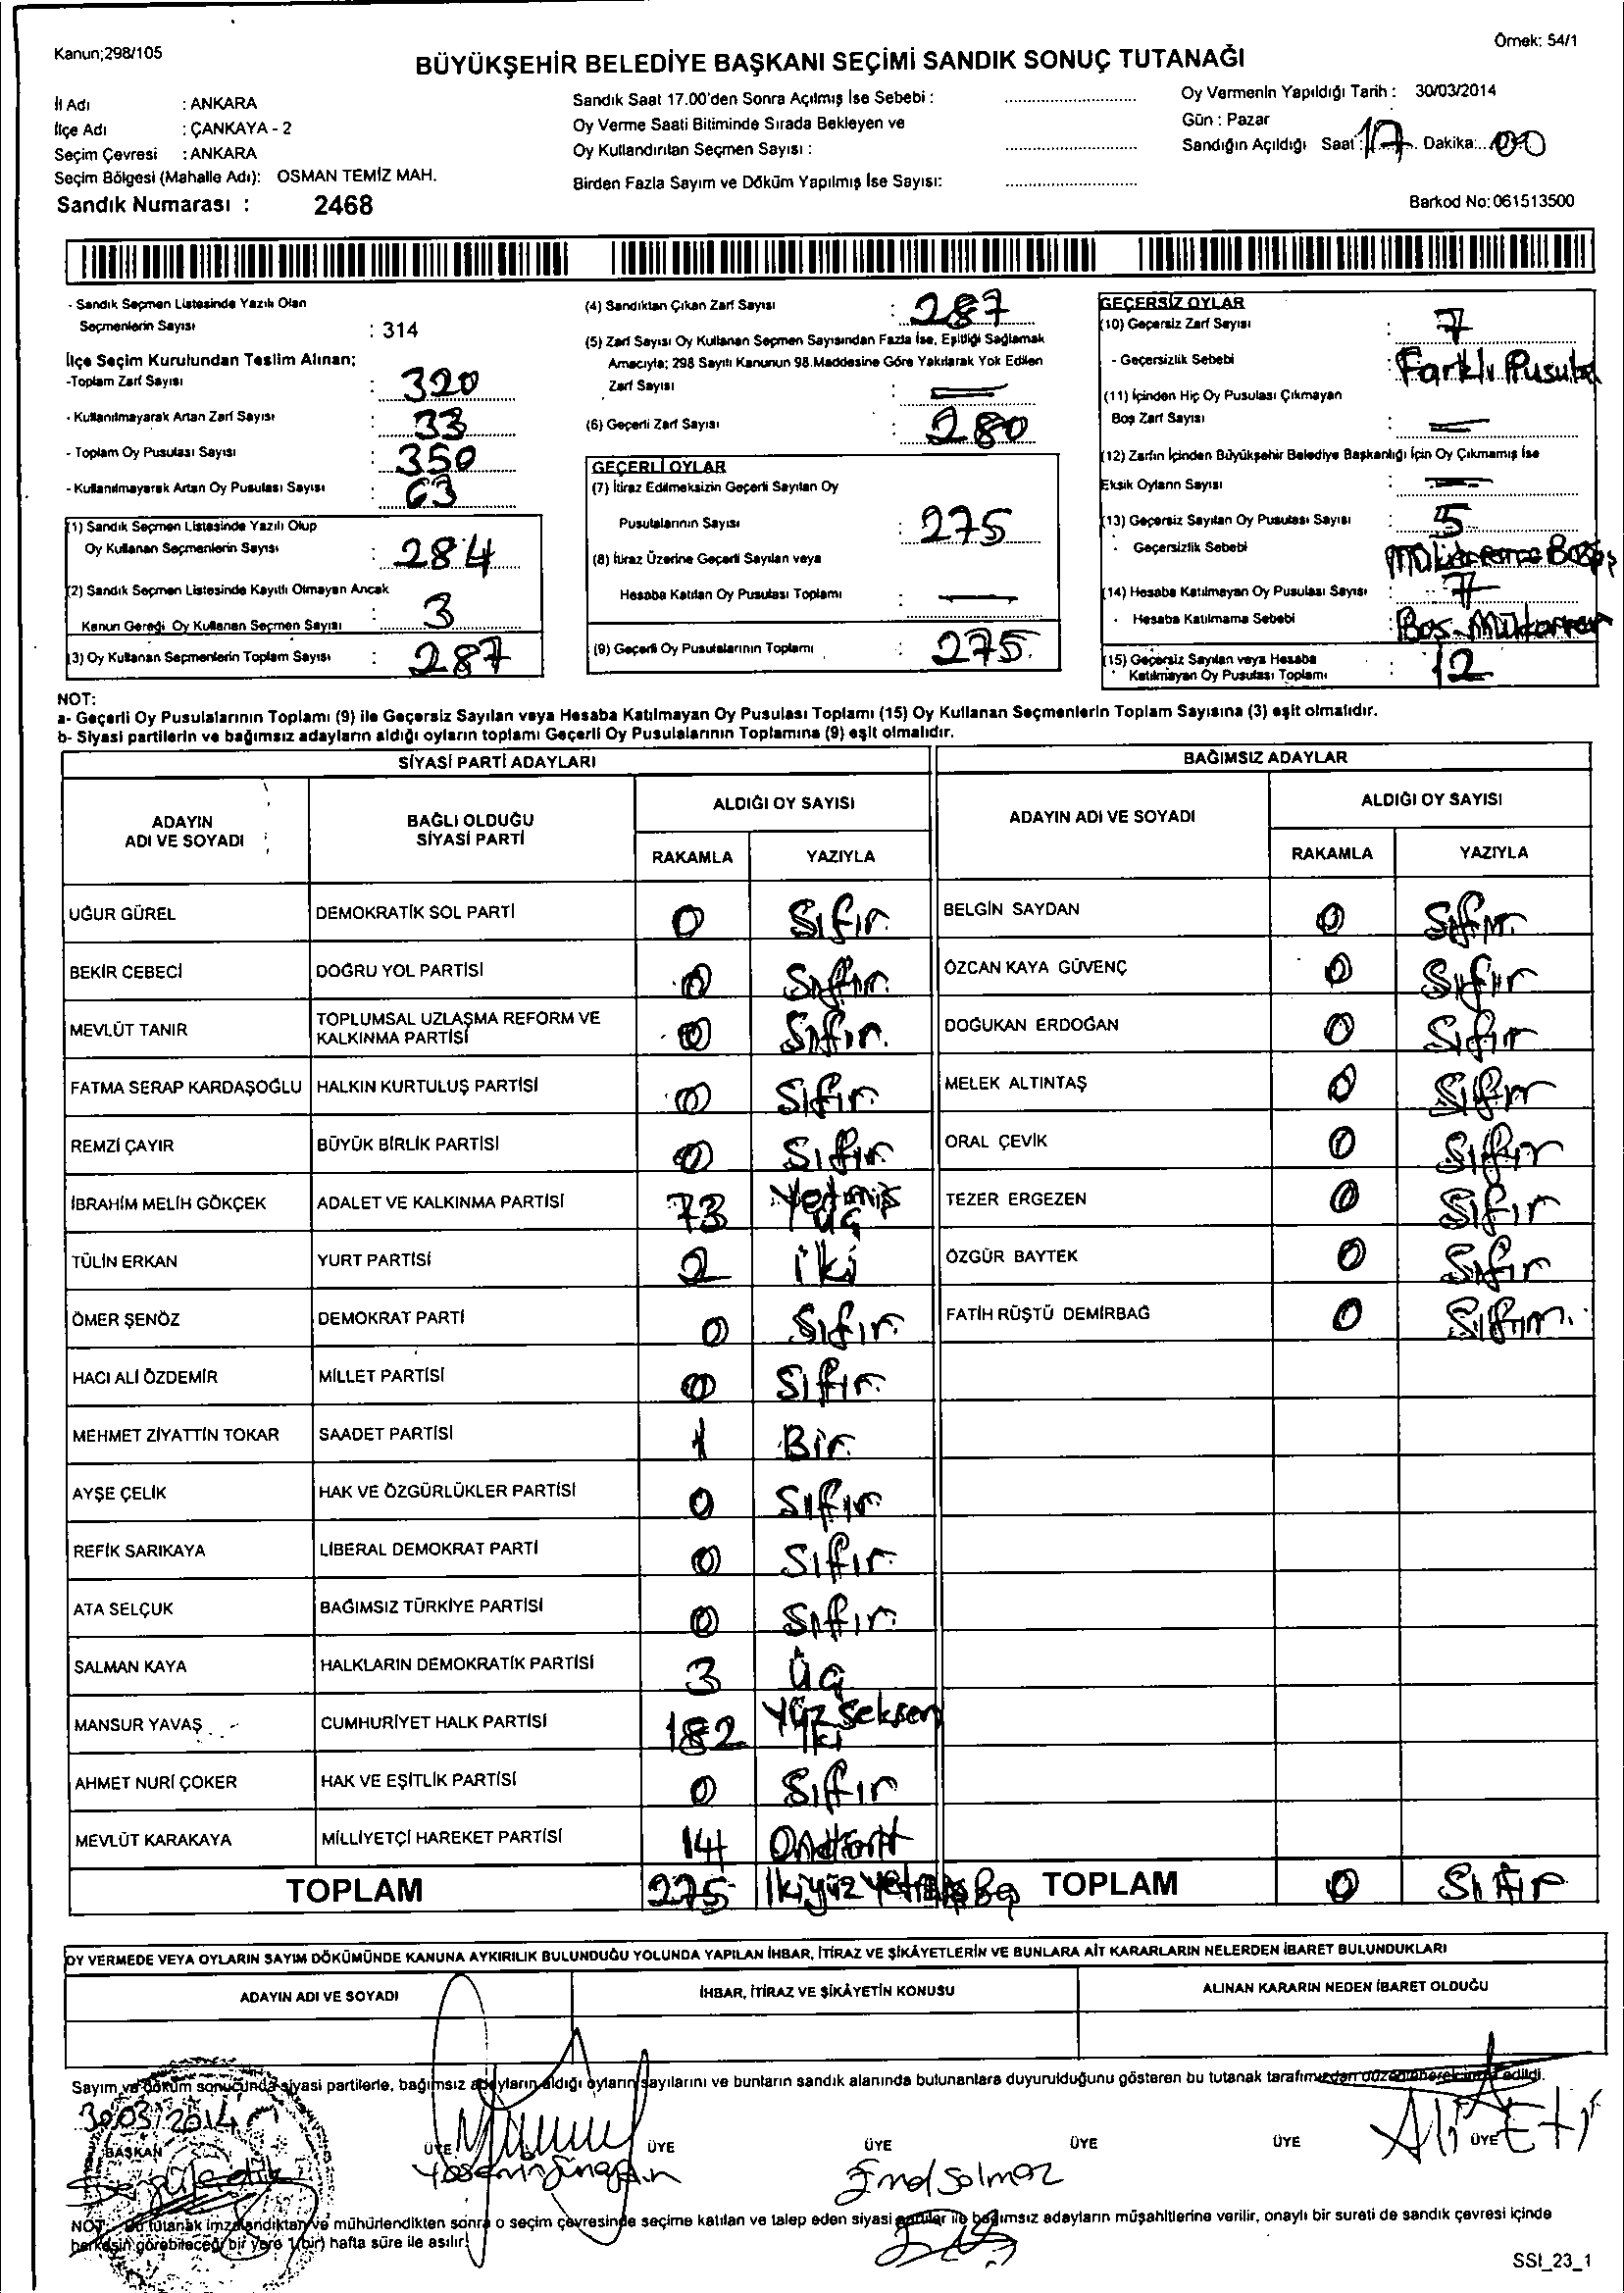 Kanun;298/105
Örnek: 54/1
BÜYÜKŞEHİR BELEDİYE BAŞKANI SEÇİMİ SANDIK SONUÇ TUTANAĞI
İl Adı : ANKARA
İlçe Adı : ÇANKAYA - 2
Seçim Çevresi : ANKARA
Seçim Bölgesi (Mahalle Adı): OSMAN TEMİZ MAH.
Sandık Numarası : 2468
Sandık Saat 17.00'den Sonra Açılmış İse Sebebi :
Oy Verme Saati Bitiminde Sırada Bekleyen ve
Oy Kullandırılan Seçmen Sayısı :
Birden Fazla Sayım ve Döküm Yapılmış İse Sayısı:
Oy Vermenin Yapıldığı Tarih : 30/03/2014
Gün : Pazar
Sandığın Açıldığı Saat : 17 Dakika: 00
Barkod No: 061513500
- Sandık Seçmen Listesinde Yazılı Olan
Seçmenlerin Sayısı : 314
İlçe Seçim Kurulundan Teslim Alınan;
-Toplam Zarf Sayısı : 320
- Kullanılmayarak Artan Zarf Sayısı : 33
- Toplam Oy Pusulası Sayısı : 350
- Kullanılmayarak Artan Oy Pusulası Sayısı : 63
(1) Sandık Seçmen Listesinde Yazılı Olup
Oy Kullanan Seçmenlerin Sayısı : 284
(2) Sandık Seçmen Listesinde Kayıtlı Olmayan Ancak
Kanun Gereği Oy Kullanan Seçmen Sayısı : 3
(3) Oy Kullanan Seçmenlerin Toplam Sayısı : 287
(4) Sandıktan Çıkan Zarf Sayısı : 287
(5) Zarf Sayısı Oy Kullanan Seçmen Sayısından Fazla İse, Eşitliği Sağlamak
Amacıyla; 298 Sayılı Kanunun 98.Maddesine Göre Yakılarak Yok Edilen
Zarf Sayısı : —
(6) Geçerli Zarf Sayısı : 280
GEÇERLİ OYLAR
(7) İtiraz Edilmeksizin Geçerli Sayılan Oy
Pusulalarının Sayısı : 275
(8) İtiraz Üzerine Geçerli Sayılan veya
Hesaba Katılan Oy Pusulası Toplamı : —
(9) Geçerli Oy Pusulalarının Toplamı : 275
GEÇERSİZ OYLAR
(10) Geçersiz Zarf Sayısı : 7
- Geçersizlik Sebebi : Farklı Pusula
(11) İçinden Hiç Oy Pusulası Çıkmayan
Boş Zarf Sayısı : —
(12) Zarfın İçinden Büyükşehir Belediye Başkanlığı İçin Oy Çıkmamış İse
Eksik Oyların Sayısı : —
(13) Geçersiz Sayılan Oy Pusulası Sayısı : 5
- Geçersizlik Sebebi
(14) Hesaba Katılmayan Oy Pusulası Sayısı : 7
- Hesaba Katılmama Sebebi : Boş
(15) Geçersiz Sayılan veya Hesaba
Katılmayan Oy Pusulası Toplamı : 12
NOT:
a- Geçerli Oy Pusulalarının Toplamı (9) ile Geçersiz Sayılan veya Hesaba Katılmayan Oy Pusulası Toplamı (15) Oy Kullanan Seçmenlerin Toplam Sayısına (3) eşit olmalıdır.
b- Siyasi partilerin ve bağımsız adayların aldığı oyların toplamı Geçerli Oy Pusulalarının Toplamına (9) eşit olmalıdır.
SİYASİ PARTİ ADAYLARI
ADAYIN ADI VE SOYADI
BAĞLI OLDUĞU SİYASİ PARTİ
ALDIĞI OY SAYISI
RAKAMLA YAZIYLA
UĞUR GÜREL DEMOKRATİK SOL PARTİ 0 Sıfır
BEKİR CEBECİ DOĞRU YOL PARTİSİ 0 Sıfır
MEVLÜT TANIR TOPLUMSAL UZLAŞMA REFORM VE KALKINMA PARTİSİ 0 Sıfır
FATMA SERAP KARDAŞOĞLU HALKIN KURTULUŞ PARTİSİ 0 Sıfır
REMZİ ÇAYIR BÜYÜK BİRLİK PARTİSİ 0 Sıfır
İBRAHİM MELİH GÖKÇEK ADALET VE KALKINMA PARTİSİ 73 Yetmiş üç
TÜLİN ERKAN YURT PARTİSİ 2 iki
ÖMER ŞENÖZ DEMOKRAT PARTİ 0 Sıfır
HACI ALİ ÖZDEMİR MİLLET PARTİSİ 0 Sıfır
MEHMET ZİYATTİN TOKAR SAADET PARTİSİ 1 Bir
AYŞE ÇELİK HAK VE ÖZGÜRLÜKLER PARTİSİ 0 Sıfır
REFİK SARIKAYA LİBERAL DEMOKRAT PARTİ 0 Sıfır
ATA SELÇUK BAĞIMSIZ TÜRKİYE PARTİSİ 0 Sıfır
SALMAN KAYA HALKLARIN DEMOKRATİK PARTİSİ 3 Üç
MANSUR YAVAŞ CUMHURİYET HALK PARTİSİ 182 Yüz Seksen iki
AHMET NURİ ÇOKER HAK VE EŞİTLİK PARTİSİ 0 Sıfır
MEVLÜT KARAKAYA MİLLİYETÇİ HAREKET PARTİSİ 14 Ondört
TOPLAM 275 İkiyüz Yetmiş Beş
BAĞIMSIZ ADAYLAR
ADAYIN ADI VE SOYADI
ALDIĞI OY SAYISI
RAKAMLA YAZIYLA
BELGİN SAYDAN 0 Sıfır
ÖZCAN KAYA GÜVENÇ 0 Sıfır
DOĞUKAN ERDOĞAN 0 Sıfır
MELEK ALTINTAŞ 0 Sıfır
ORAL ÇEVİK 0 Sıfır
TEZER ERGEZEN 0 Sıfır
ÖZGÜR BAYTEK 0 Sıfır
FATİH RÜŞTÜ DEMİRBAĞ 0 Sıfır
TOPLAM 0 Sıfır
OY VERMEDE VEYA OYLARIN SAYIM DÖKÜMÜNDE KANUNA AYKIRILIK BULUNDUĞU YOLUNDA YAPILAN İHBAR, İTİRAZ VE ŞİKÂYETLERİN VE BUNLARA AİT KARARLARIN NELERDEN İBARET BULUNDUKLARI
ADAYIN ADI VE SOYADI
İHBAR, İTİRAZ VE ŞİKÂYETİN KONUSU
ALINAN KARARIN NEDEN İBARET OLDUĞU
Sayım ve döküm sonucunda siyasi partilerle, bağımsız adayların aldığı oyların sayılarını ve bunların sandık alanında bulunanlara duyurulduğunu gösteren bu tutanak tarafımızdan düzenlenerek imza edildi.
30.03.2014
BAŞKAN ÜYE ÜYE ÜYE ÜYE ÜYE ÜYE
NOT: Bu tutanak imzalandıktan ve mühürlendikten sonra o seçim çevresinde seçime katılan ve talep eden siyasi partiler ile bağımsız adayların müşahitlerine verilir, onaylı bir sureti de sandık çevresi içinde
herkesin görebileceği bir yere 1(bir) hafta süre ile asılır.
SSI_23_1